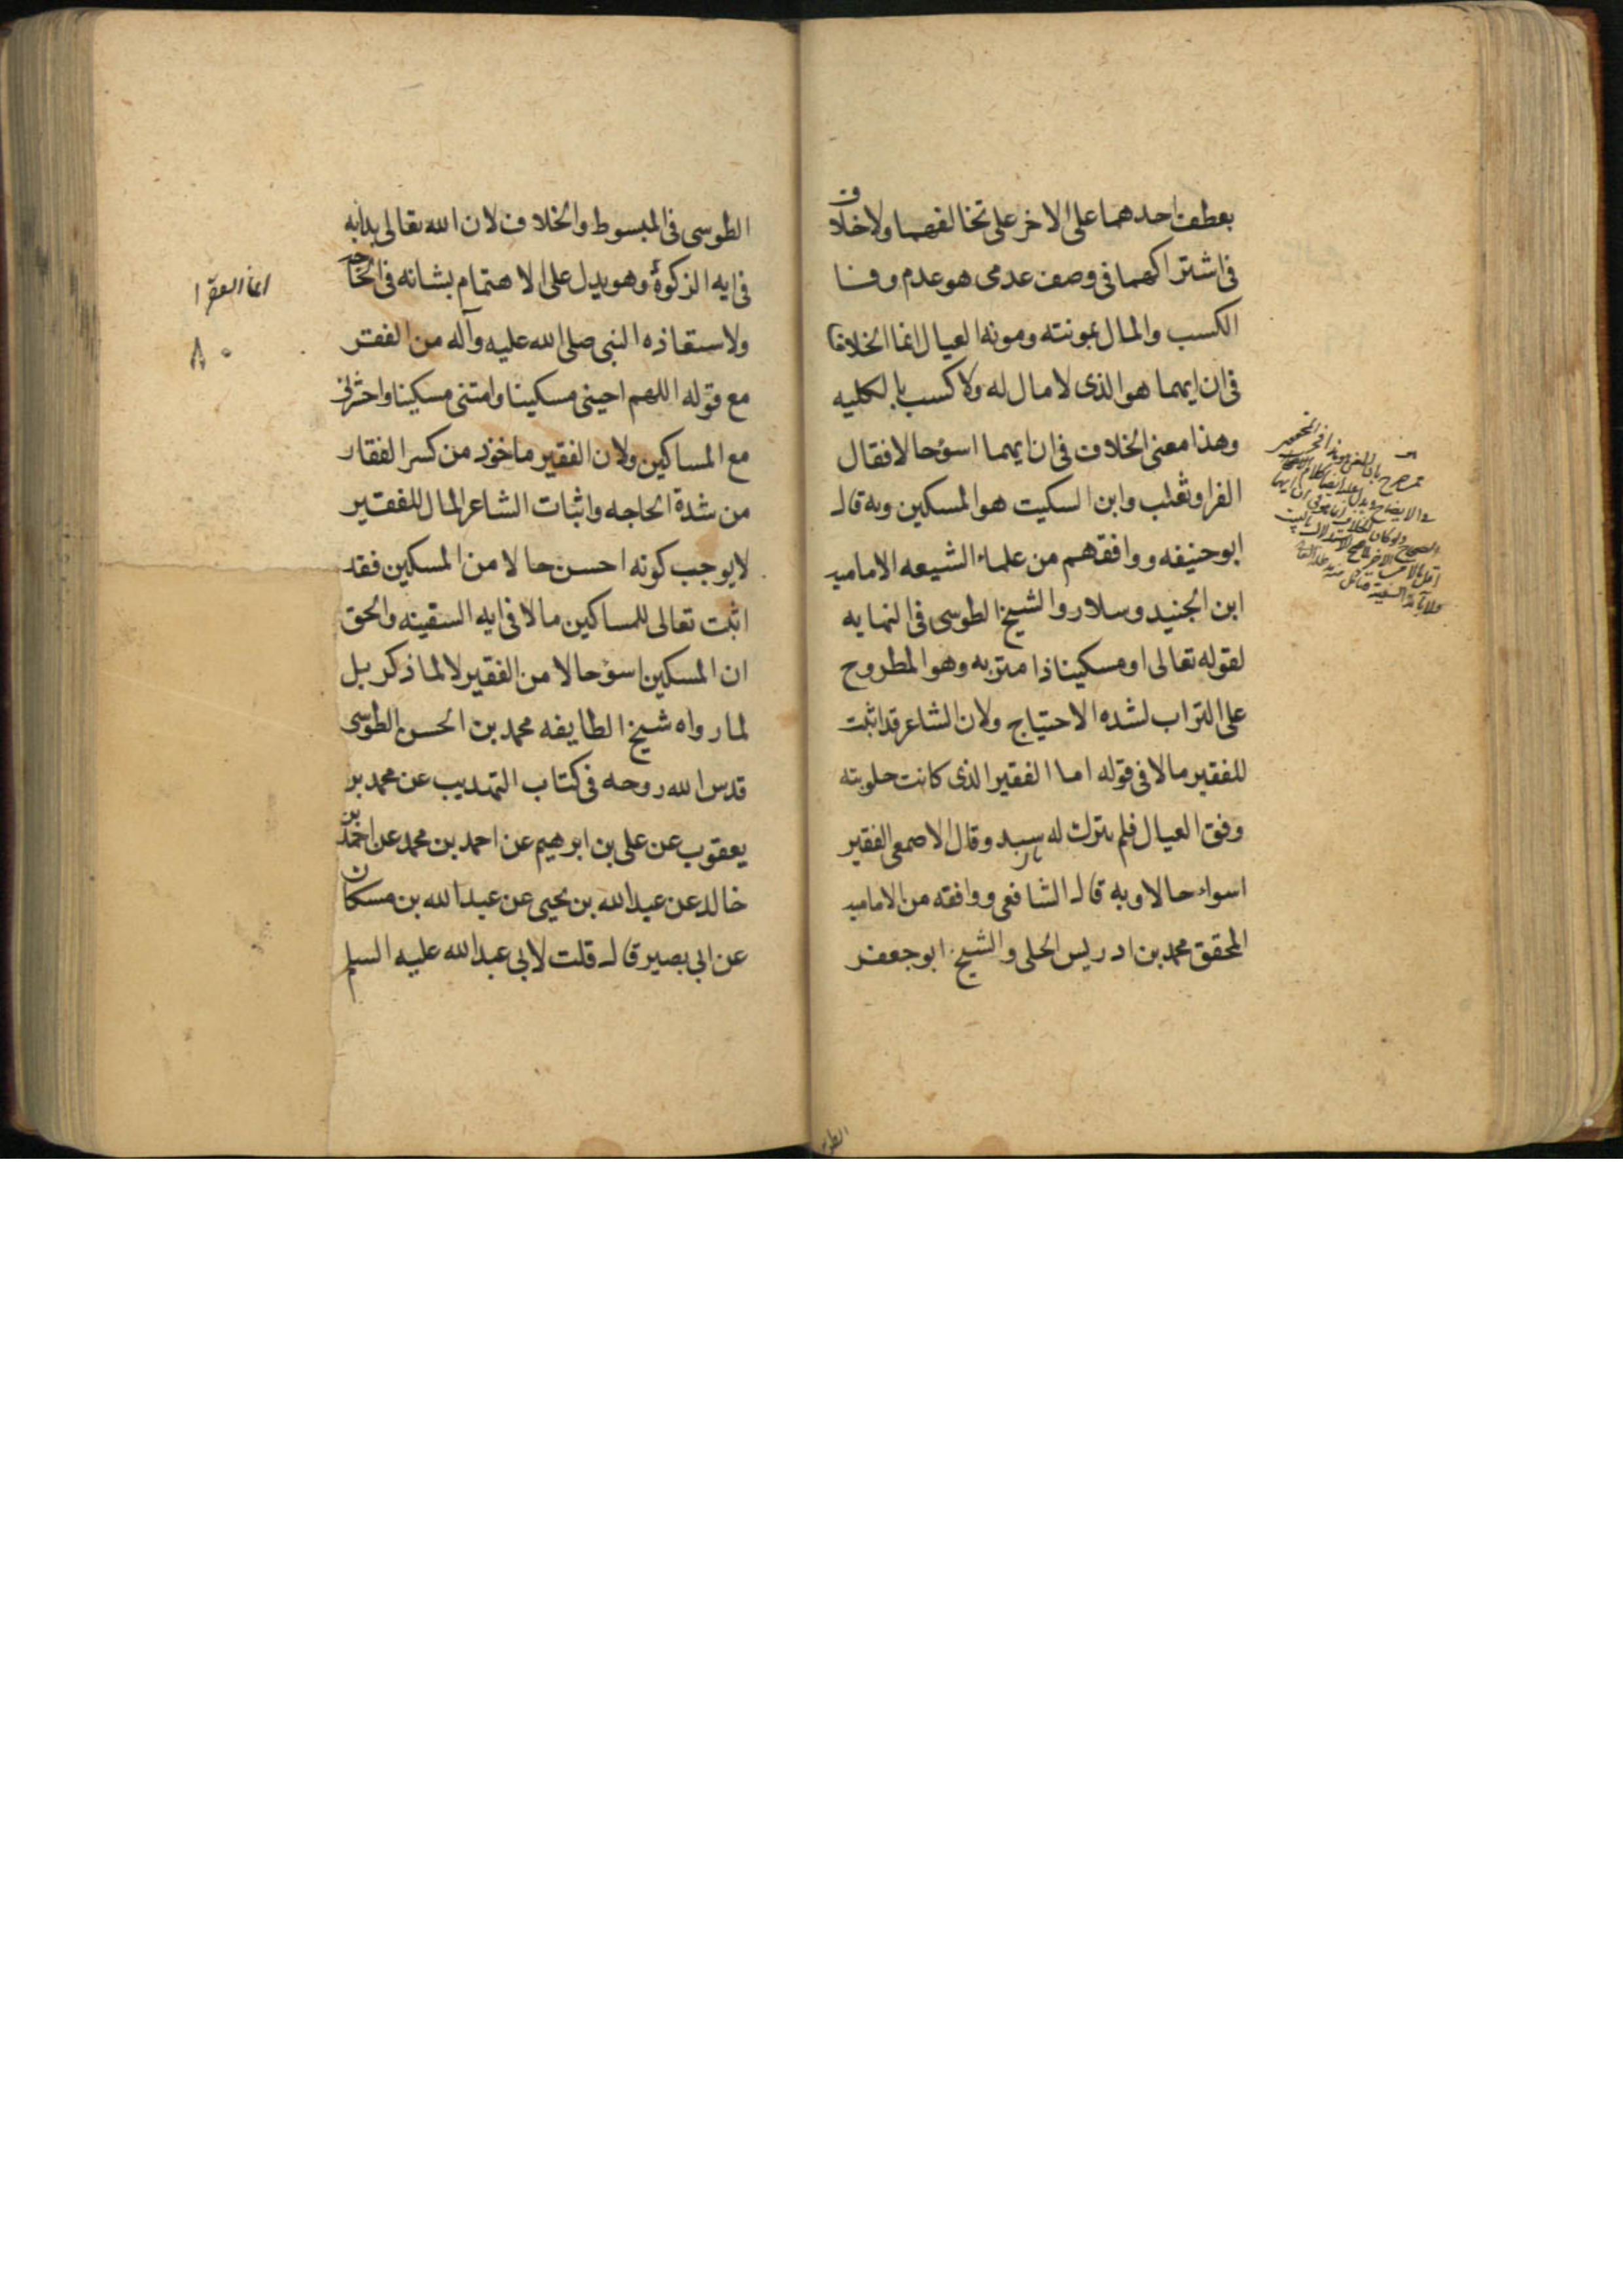 بعطف احدهما على الاخر على تخالفهما ولا خلاف
فى اشتراكهما فى وصف عدمى هو عدم وفا
الكسب والمال بمونته ومونه العيال انما الخلاف
فى ان ايهما هو الذى لا مال له ولا كسب بالكليه
وهذا معنى الخلاف فى ان ايهما اسؤ حالا فقال
الفرا وثعلب وابن السكيت هو المسكين وبه قال
ابو حنيفه ووافقهم من علماء الشيعه الاماميه
ابن الجنيد وسلار والشيخ الطوسى فى النهايه
لقوله تعالى او مسكينا ذا متربه وهو المطروح
على التراب لشده الاحتياج ولان الشاعر قد اثبت
للفقير مالا فى قوله اما الفقير الذى كانت حلوبته
وفق العيال فلم يترك له سبد وقال الاصمعى الفقير
اسواء حالا وبه قال الشافعى ووافقه من الاماميه
المحقق محمد بن ادريس الحلى والشيخ ابو جعفر
الطو
الطوسى فى المبسوط والخلاف لان الله تعالى بدا به
فى ايه الزكوة وهو يدل على الاهتمام بشانه فى الحاجه
ولاستعاذه النبى صلى الله عليه وآله من الفقر
مع قوله اللهم احينى مسكينا وامتنى مسكينا واحشرنى
مع المساكين ولان الفقير ماخوذ من كسر الفقار
من شدة الحاجه واثبات الشاعر المال للفقير
لا يوجب كونه احسن حالا من المسكين فقد
اثبت تعالى للمساكين مالا فى ايه السفينه والحق
ان المسكين اسؤ حالا من الفقير لا لما ذكر بل
لما رواه شيخ الطايفه محمد بن الحسن الطوسى
قدس الله روحه فى كتاب التهذيب عن محمد بن
يعقوب عن على بن ابرهيم عن احمد بن محمد عن احمد بن
خالد عن عبد الله بن يحيى عن عبد الله بن مسكان
عن ابى بصير قال قلت لابى عبد الله عليه السلم
انما الفقرا
۸۰